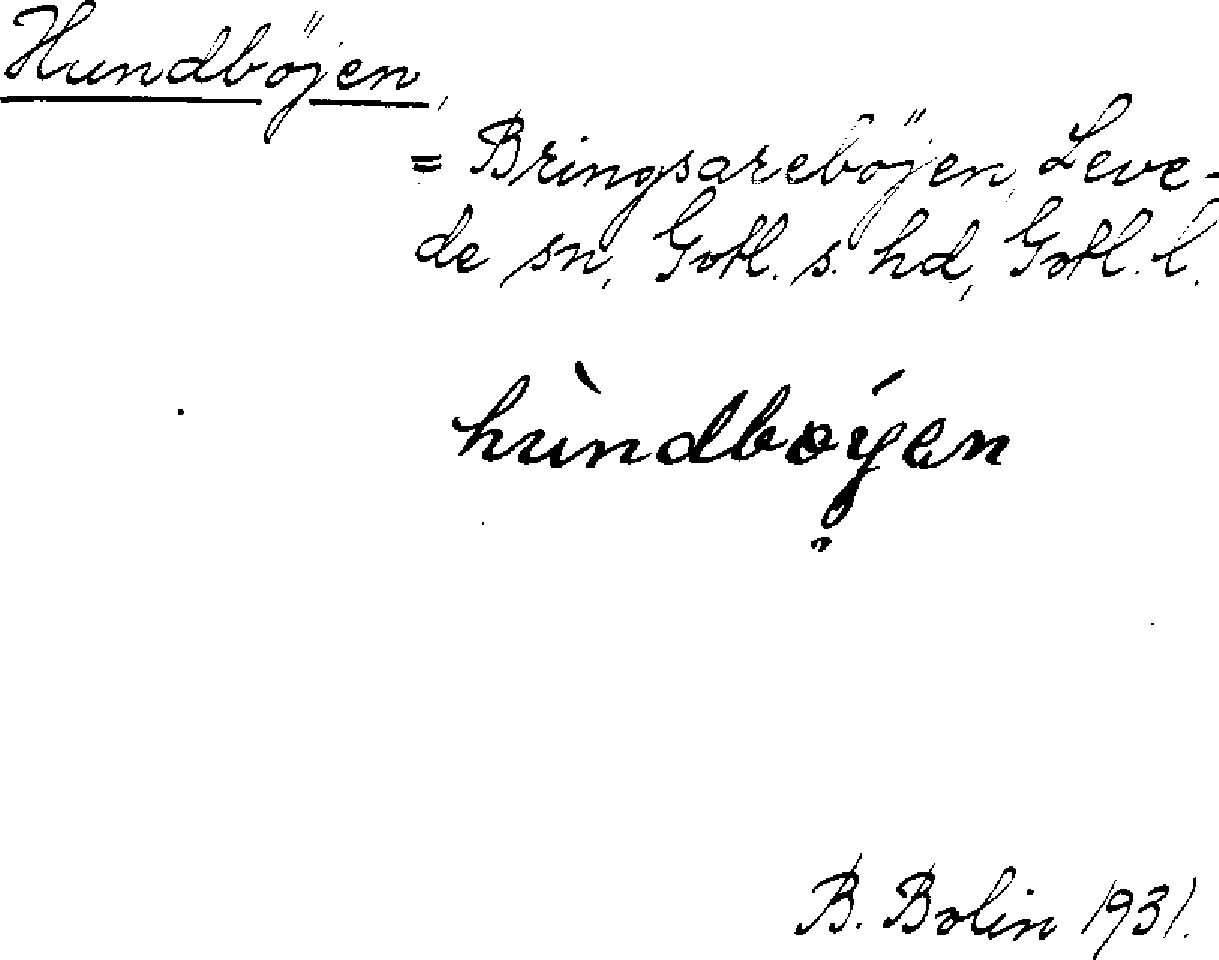 Hundböjen,
= Bringsareböjen, Leve-
de sn, Gotl. s. hd, Gotl. l.
hùndbǿyən
B. Bolin 1931.